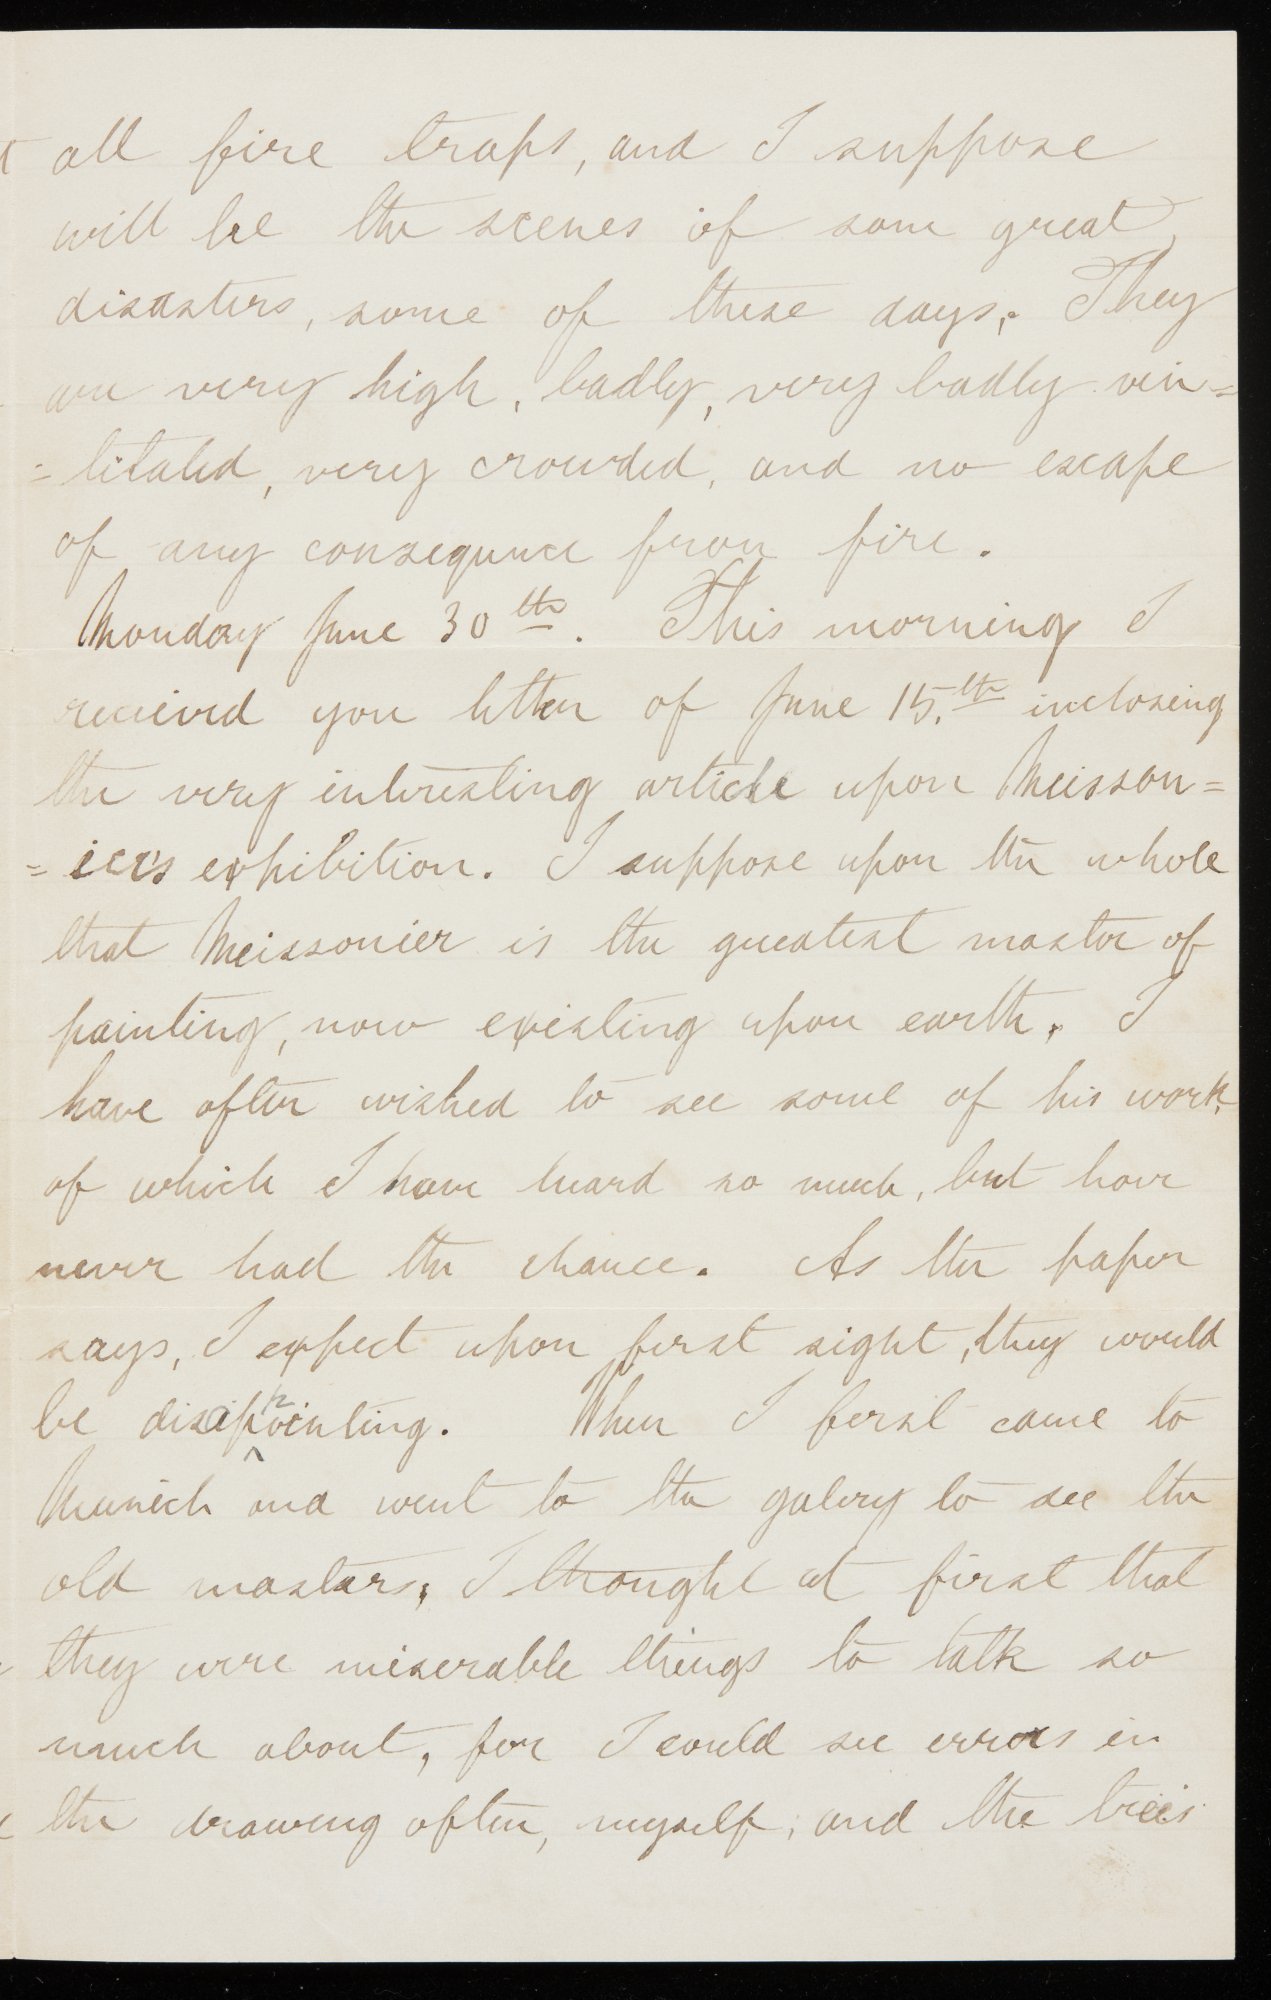 all fire traps, and I suppose
will be the scenes of som great
disasters, some of these days. They
are very high, badly, very badly vin=
=litated, very crowded, and no escape
of any consequnce from fire.
Monday June 30th. This morning I
received you letter of June 15.th inclosing
the very interesting article upon Meisson=
=iers exhibition. I suppose upon the whole
that Meissonier is the greatest master of
painting, now existing upon earth. I
have often wished to see some of his work,
of which I have heard so much, but have
never had the chance. As the paper
says, I expect upon first sight, they would
be disappointing. When I first came to
Munich and went to the galery to see the
old masters, I thought at first that
they were miserable things to talk so
much about, for I could see errors in
the drawing often, myself, and the trees